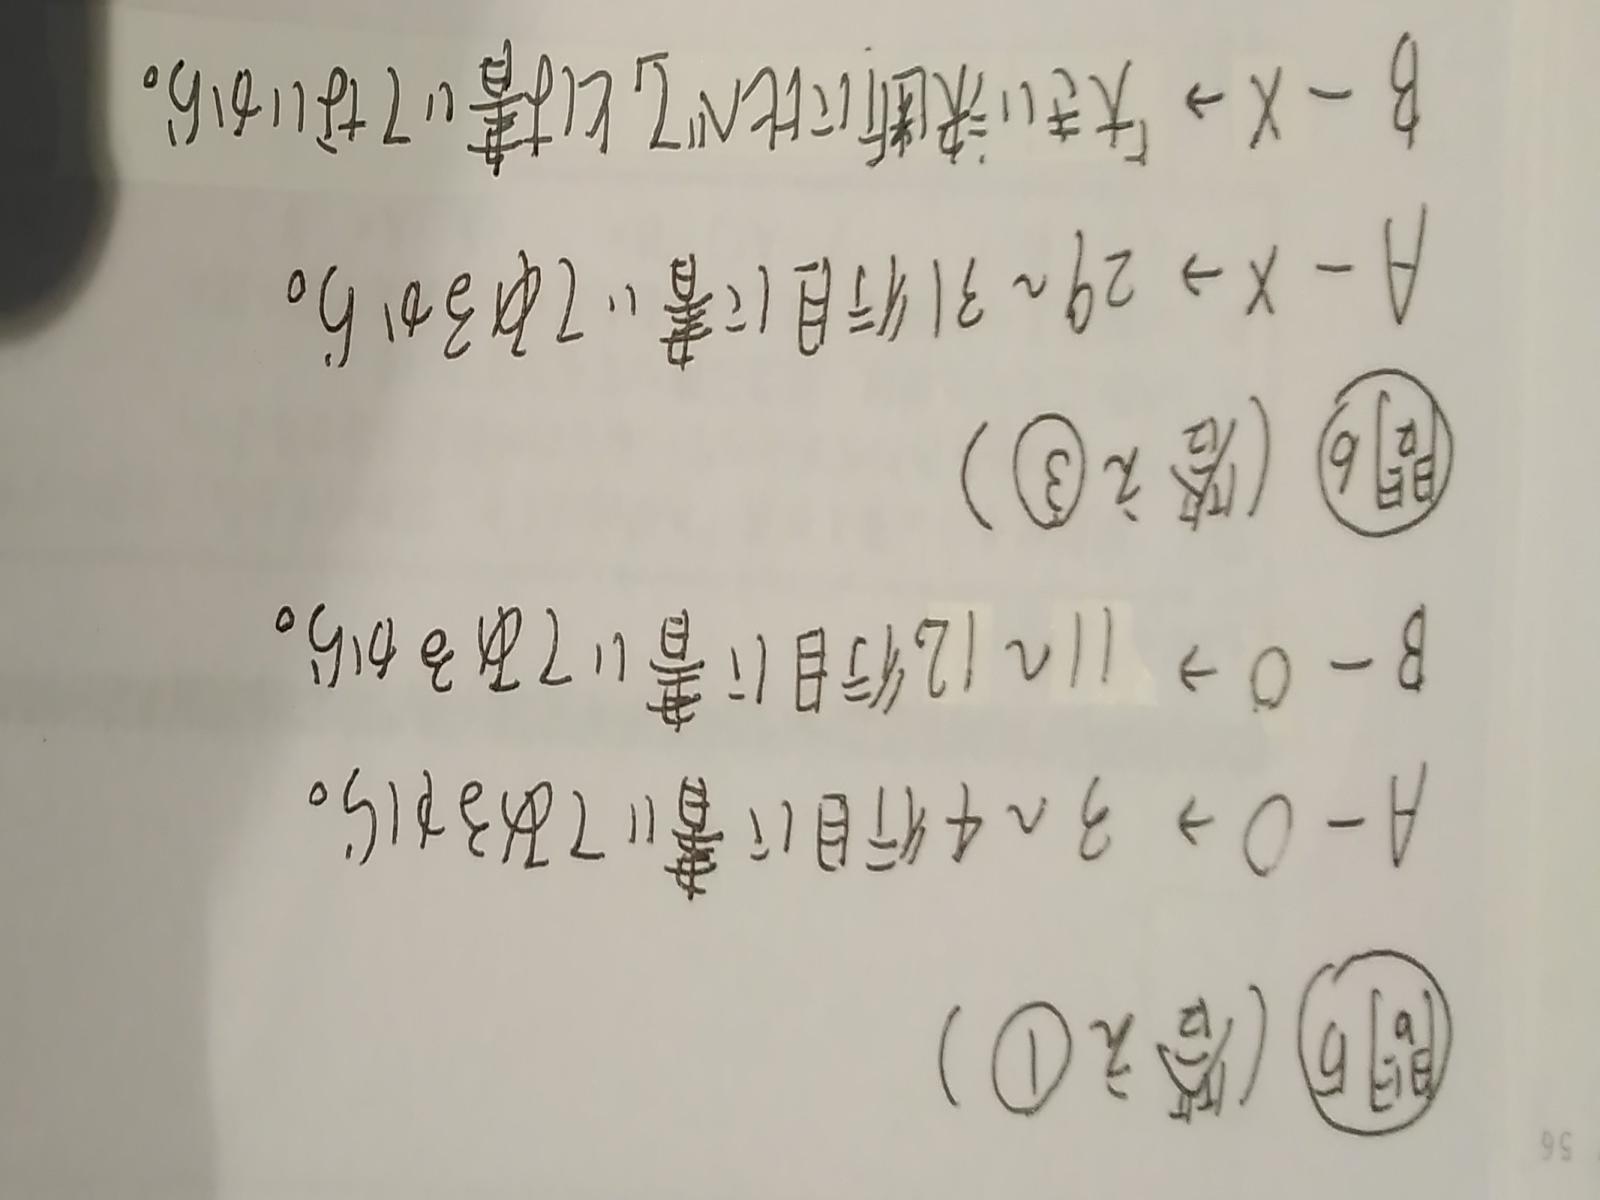 56
問5 (答え①)
A－○→3～4行目に書いてあるから。
B－○→11～12行目に書いてあるから。
問6 (答え③)
A－×→29～31行目に書いてあるから。
B－×→「大きい決断に比べて」とは書いてないから。